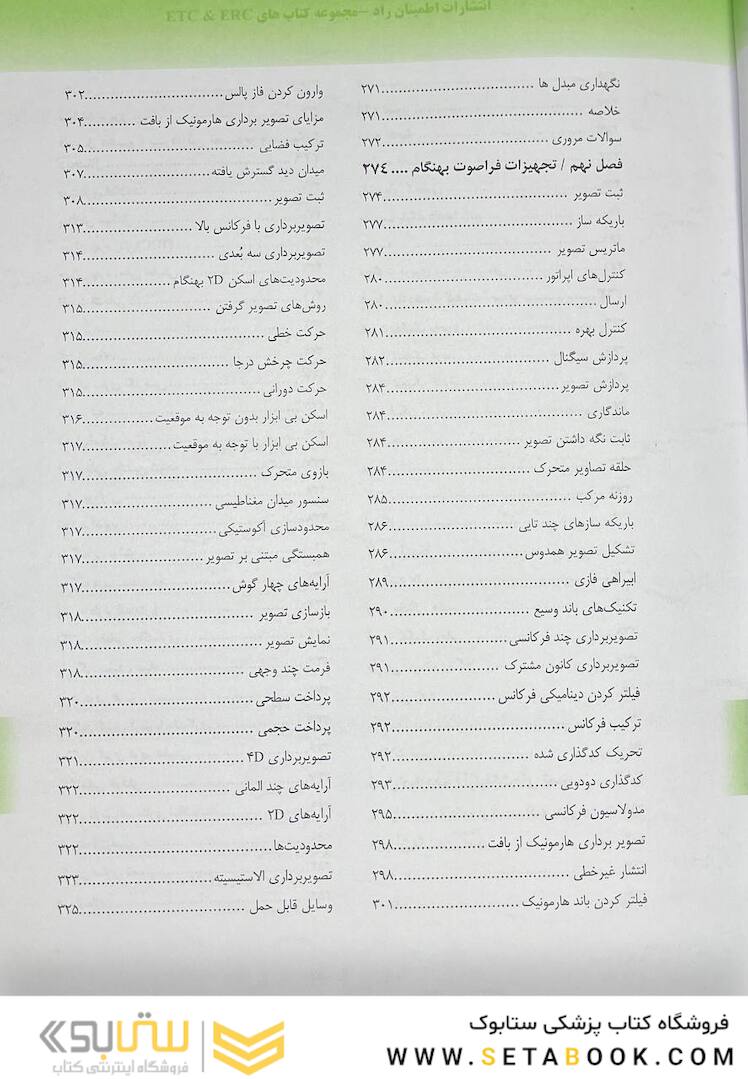 انتشارات اطمینان راد –مجموعه کتاب های ETC & ERC
نگهداری مبدل ها ....................................۲۷۱
خلاصه ....................................۲۷۱
سوالات مروری ....................................۲۷۲
فصل نهم / تجهیزات فراصوت بهنگام .... ۲۷۴
ثبت تصویر ....................................۲۷۴
باریکه ساز ....................................۲۷۷
ماتریس تصویر ....................................۲۷۷
کنترل‌های اپراتور ....................................۲۸۰
ارسال ....................................۲۸۰
کنترل بهره ....................................۲۸۱
پردازش سیگنال ....................................۲۸۲
پردازش تصویر ....................................۲۸۴
ماندگاری ....................................۲۸۴
ثابت نگه داشتن تصویر ....................................۲۸۴
حلقه تصاویر متحرک ....................................۲۸۴
روزنه مرکب ....................................۲۸۵
باریکه سازهای چند تایی ....................................۲۸۶
تشکیل تصویر همدوس ....................................۲۸۶
ابیراهی فازی ....................................۲۸۹
تکنیک‌های باند وسیع ....................................۲۹۰
تصویربرداری چند فرکانسی ....................................۲۹۱
تصویربرداری کانون مشترک ....................................۲۹۱
فیلتر کردن دینامیکی فرکانس ....................................۲۹۲
ترکیب فرکانس ....................................۲۹۲
تحریک کدگذاری شده ....................................۲۹۲
کدگذاری دودویی ....................................۲۹۳
مدولاسیون فرکانسی ....................................۲۹۵
تصویر برداری هارمونیک از بافت ....................................۲۹۸
انتشار غیرخطی ....................................۲۹۸
فیلتر کردن باند هارمونیک ....................................۳۰۱
وارون کردن فاز پالس ....................................۳۰۲
مزایای تصویر برداری هارمونیک از بافت ............۳۰۴
ترکیب فضایی ....................................۳۰۵
میدان دید گسترش یافته ....................................۳۰۷
ثبت تصویر ....................................۳۰۸
تصویربرداری با فرکانس بالا ....................................۳۱۳
تصویربرداری سه بُعدی ....................................۳۱۴
محدودیت‌های اسکن 2D بهنگام ....................................۳۱۴
روش‌های تصویر گرفتن ....................................۳۱۵
حرکت خطی ....................................۳۱۵
حرکت چرخش درجا ....................................۳۱۵
حرکت دورانی ....................................۳۱۵
اسکن بی ابزار بدون توجه به موقعیت ................۳۱۶
اسکن بی ابزار با توجه به موقعیت ....................۳۱۷
بازوی متحرک ....................................۳۱۷
سنسور میدان مغناطیسی ....................................۳۱۷
محدودسازی آکوستیکی ....................................۳۱۷
همبستگی مبتنی بر تصویر ....................................۳۱۷
آرایه‌های چهار گوش ....................................۳۱۷
بازسازی تصویر ....................................۳۱۸
نمایش تصویر ....................................۳۱۸
فرمت چند وجهی ....................................۳۱۸
پرداخت سطحی ....................................۳۲۰
پرداخت حجمی ....................................۳۲۰
تصویربرداری 4D ....................................۳۲۱
آرایه‌های چند المانی ....................................۳۲۲
آرایه‌های 2D ....................................۳۲۲
محدودیت‌ها ....................................۳۲۲
تصویربرداری الاستیسیته ....................................۳۲۳
وسایل قابل حمل ....................................۳۲۵
فروشگاه کتاب پزشکی ستابوک
WWW.SETABOOK.COM
ستابوک
فروشگاه اینترنتی کتاب